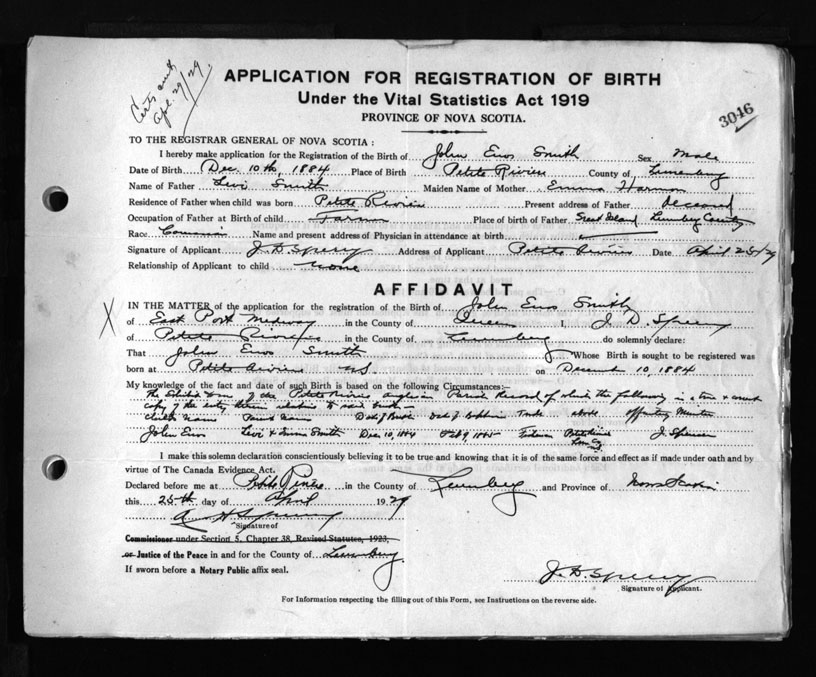 Apl. 29/29
APPLICATION FOR REGISTRATION OF BIRTH
Under the Vital Statistics Act 1919
PROVINCE OF NOVA SCOTIA.
3046
TO THE REGISTRAR GENERAL OF NOVA SCOTIA:
I hereby make application for the Registration of the Birth of John Enos Smith Sex Male
Date of Birth Dec. 10th, 1884 Place of Birth Petite Riviere County of Lunenburg
Name of Father Levi Smith Maiden Name of Mother Emma Harmon
Residence of Father when child was born Petite Riviere Present address of Father deceased
Occupation of Father at Birth of child Place of Birth of Father Island County
Race Name and present address of Physician in attendance at birth
Signature of Applicant J. D. Sperry Address of Applicant Petite Riviere Date April 25/29
Relationship of Applicant to child none
AFFIDAVIT
IN THE MATTER of the application for the registration of the Birth of John Enos Smith
of East Port Medway in the County of Queens I, J. D. Sperry
of Petite Riviere in the County of Lunenburg do solemnly declare:
That John Enos Smith Whose Birth is sought to be registered was
born at Petite Riviere NS on December 10, 1884
My knowledge of the fact and date of such Birth is based on the following Circumstances:—
of the Petite Riviere Anglican Parish Record of which the following is a true & correct
copy of the entry therein relative to said birth
Childs Name Parents Names Date of Birth Date of Baptism Trade abode Officiating Minister
John Enos Levi & Emma Smith Dec 10, 1884 Feb 9, 1885 Petite Riviere J. Spencer
Lun. Co.
I make this solemn declaration conscientiously believing it to be true and knowing that it is of the same force and effect as if made under oath and by
virtue of The Canada Evidence Act.
Declared before me at Petite Riviere in the County of Lunenburg and Province of Nova Scotia
this 25th day of April 1929
Signature of
Commissioner under Section 5, Chapter 38, Revised Statutes, 1923,
or Justice of the Peace in and for the County of Lunenburg
If sworn before a Notary Public affix seal.
J. D. Sperry
Signature of Applicant.
For Information respecting the filling out of this Form, see Instructions on the reverse side.